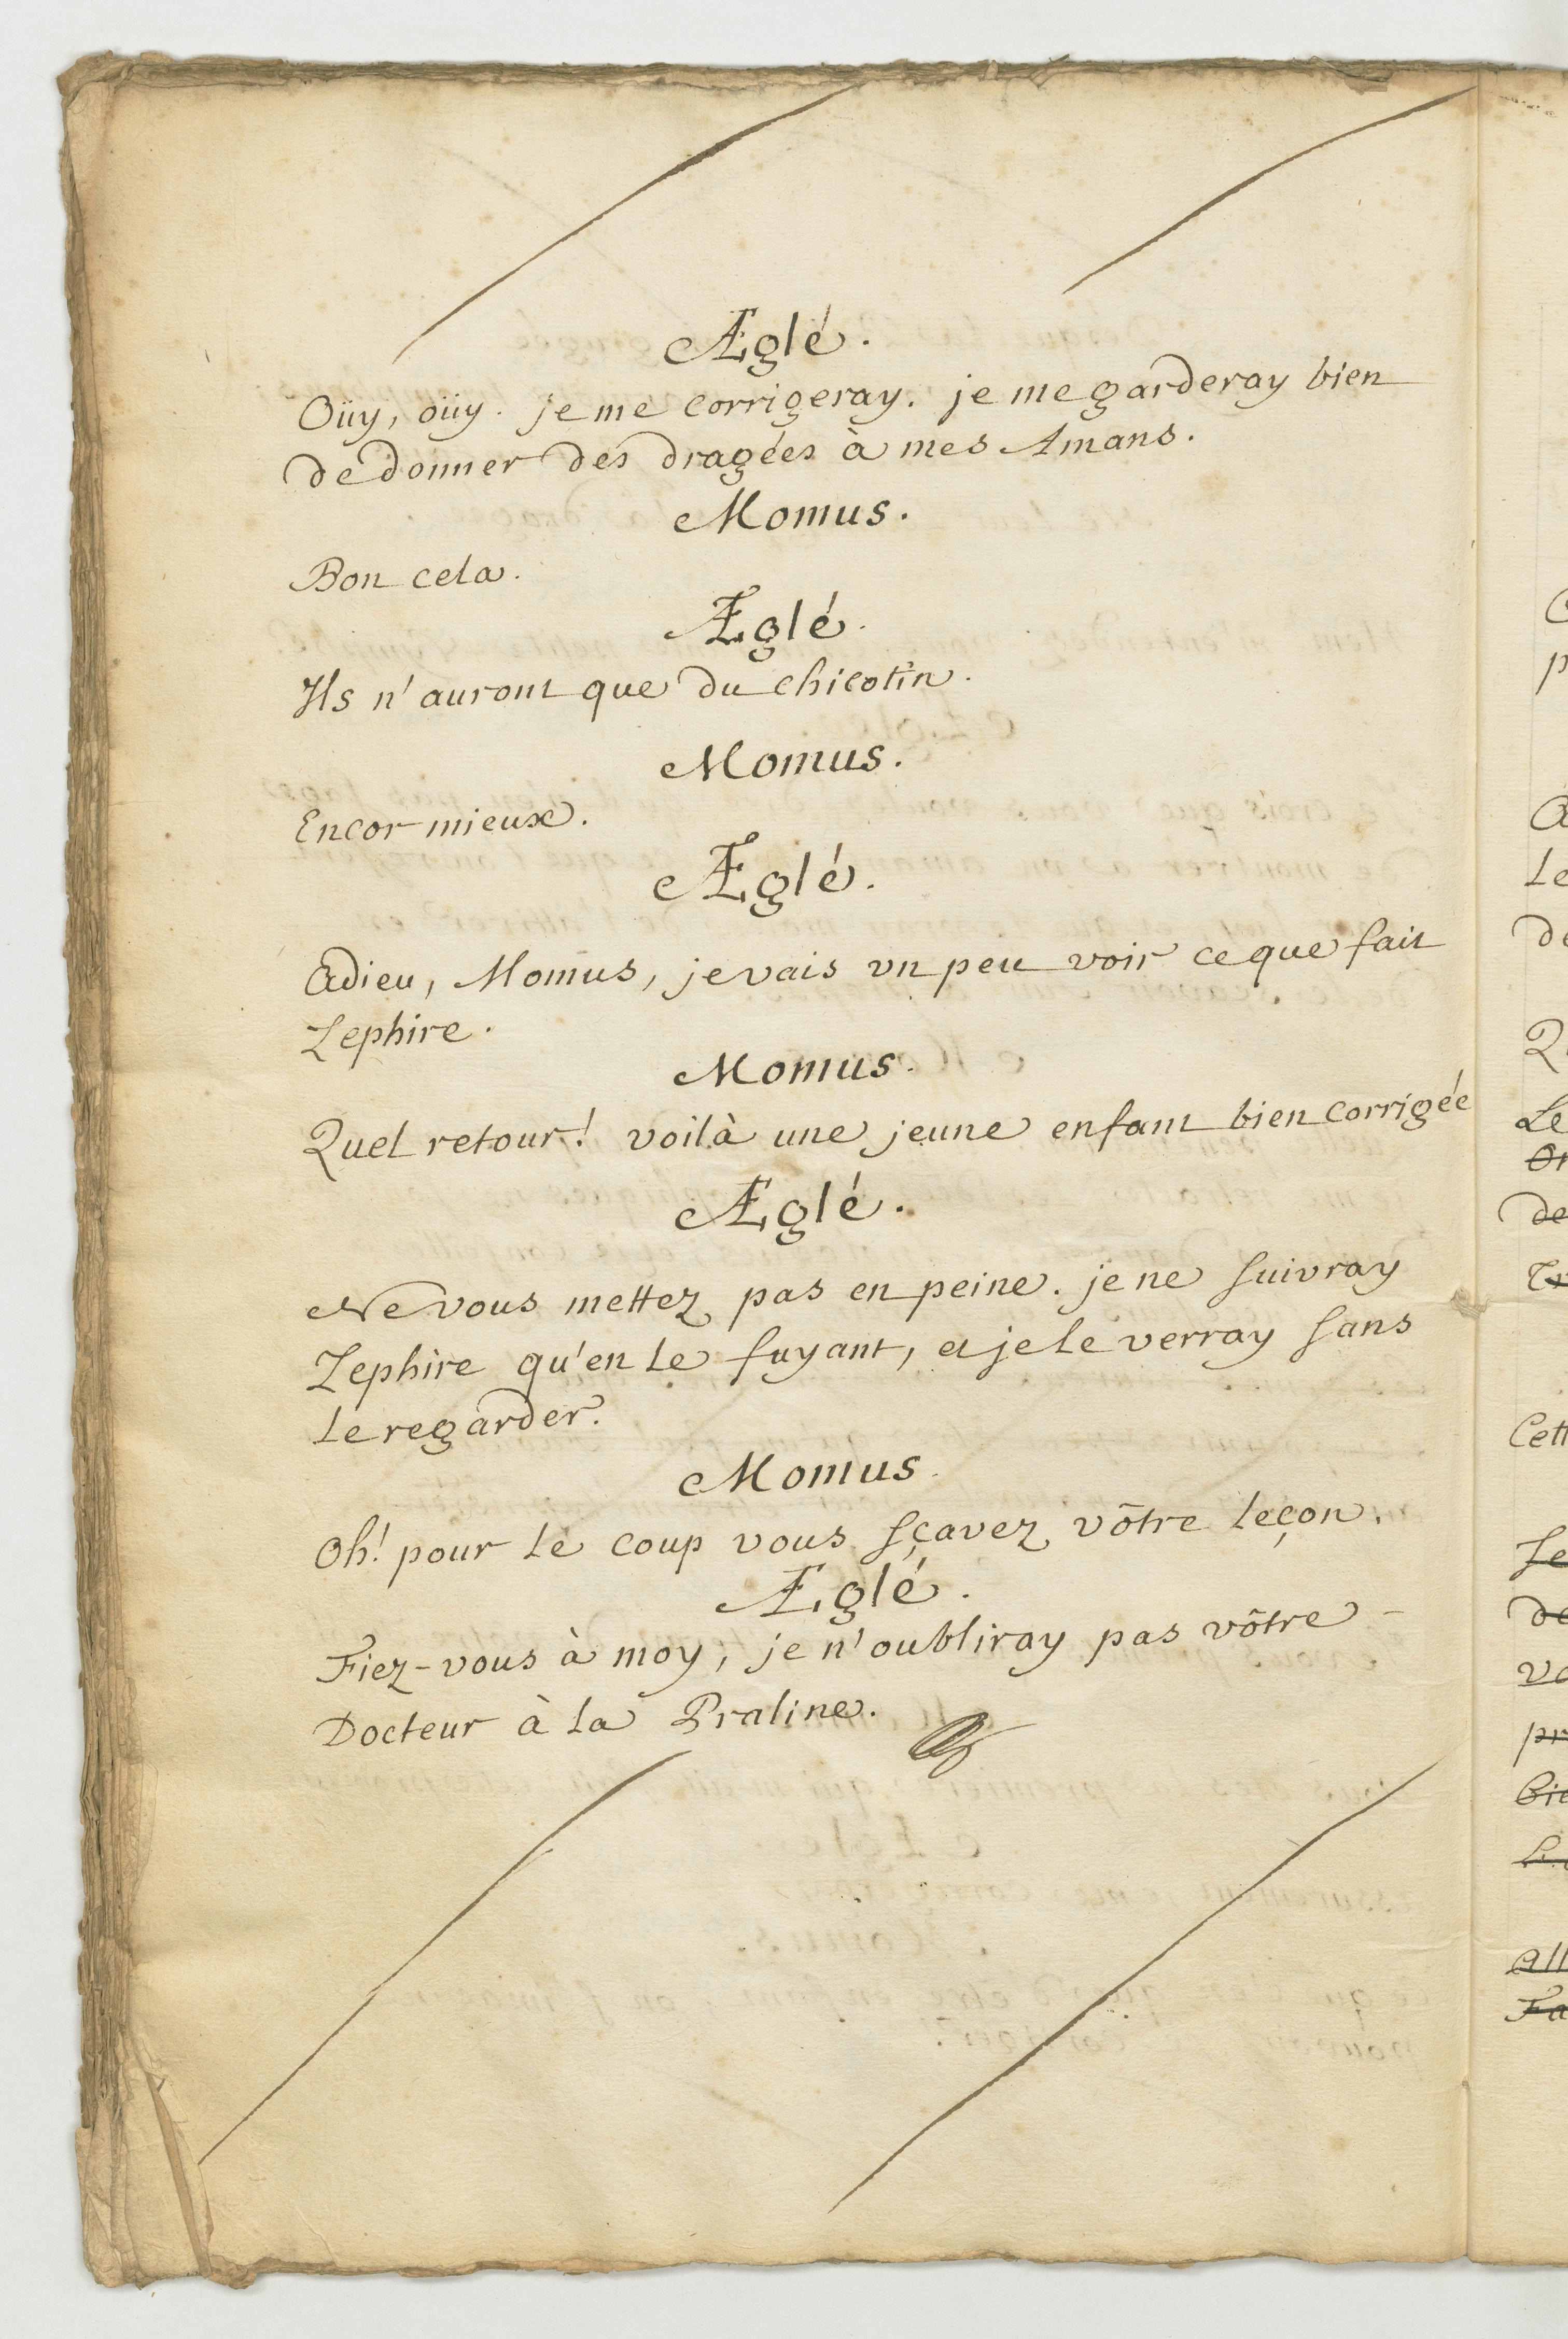 Æglé.
Oüy, oüy. je me corrigeray. je me garderay bien
de donner des dragées à mes Amans.
Momus.
Bon cela.
Æglé.
Ils n'auront que du chicotin.
Momus.
Encor mieux.
Æglé.
Adieu, Momus, je vais vn peu voir ce que fait
Zephire.
Momus.
Quel retour! voilà une jeune enfant bien corrigée
Æglé.
Ne vous mettez pas en peine. je ne suivray
Zephire qu'en le fuyant, et je le verray sans
le regarder.
Momus.
Oh! pour le coup vous sçavez vôtre leçon.
Æglé.
Fiez-vous à moy, je n'oubliray pas vôtre
Docteur à la Praline.